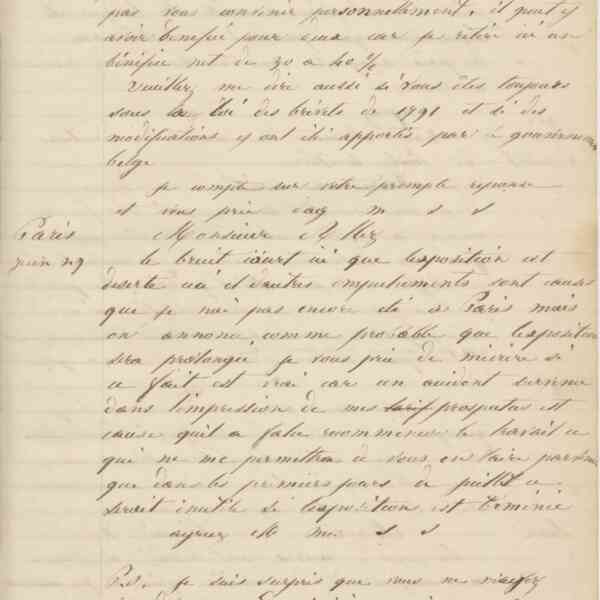 pas vous convenir personnellement, il peut y
avoir bénéfice pour eux car je retire ici un
bénéfice net de 30 a 40 %
Veuillez me dire aussi si vous êtes toujours
sous la loi des brévets de 1791 et si des
modifications y ont été apportés par le gouvernement
belge
je compte sur votre prompte reponse
et vous prie d'ag m s s
Paris
juin 29
Monsieur
le bruit court ici que l'exposition est
deserte ici et d'autres empechements sont causes
que je n'ai pas encore été à Paris mais
on annonce comme probable que l'exposition
sera prolongée, je vous prie de m'écrire si
ce fait est vrai car un accident survenu
dans l'impression de mes tarif prospectus est
cause qu'il a fallu recommencer le travail ce
qui ne me permettra de vous en faire
que dans les premiers jours de juillet ce
serait inutile si l'exposition est términée
agreez M m s s
P.S. je suis surpris que vous ne